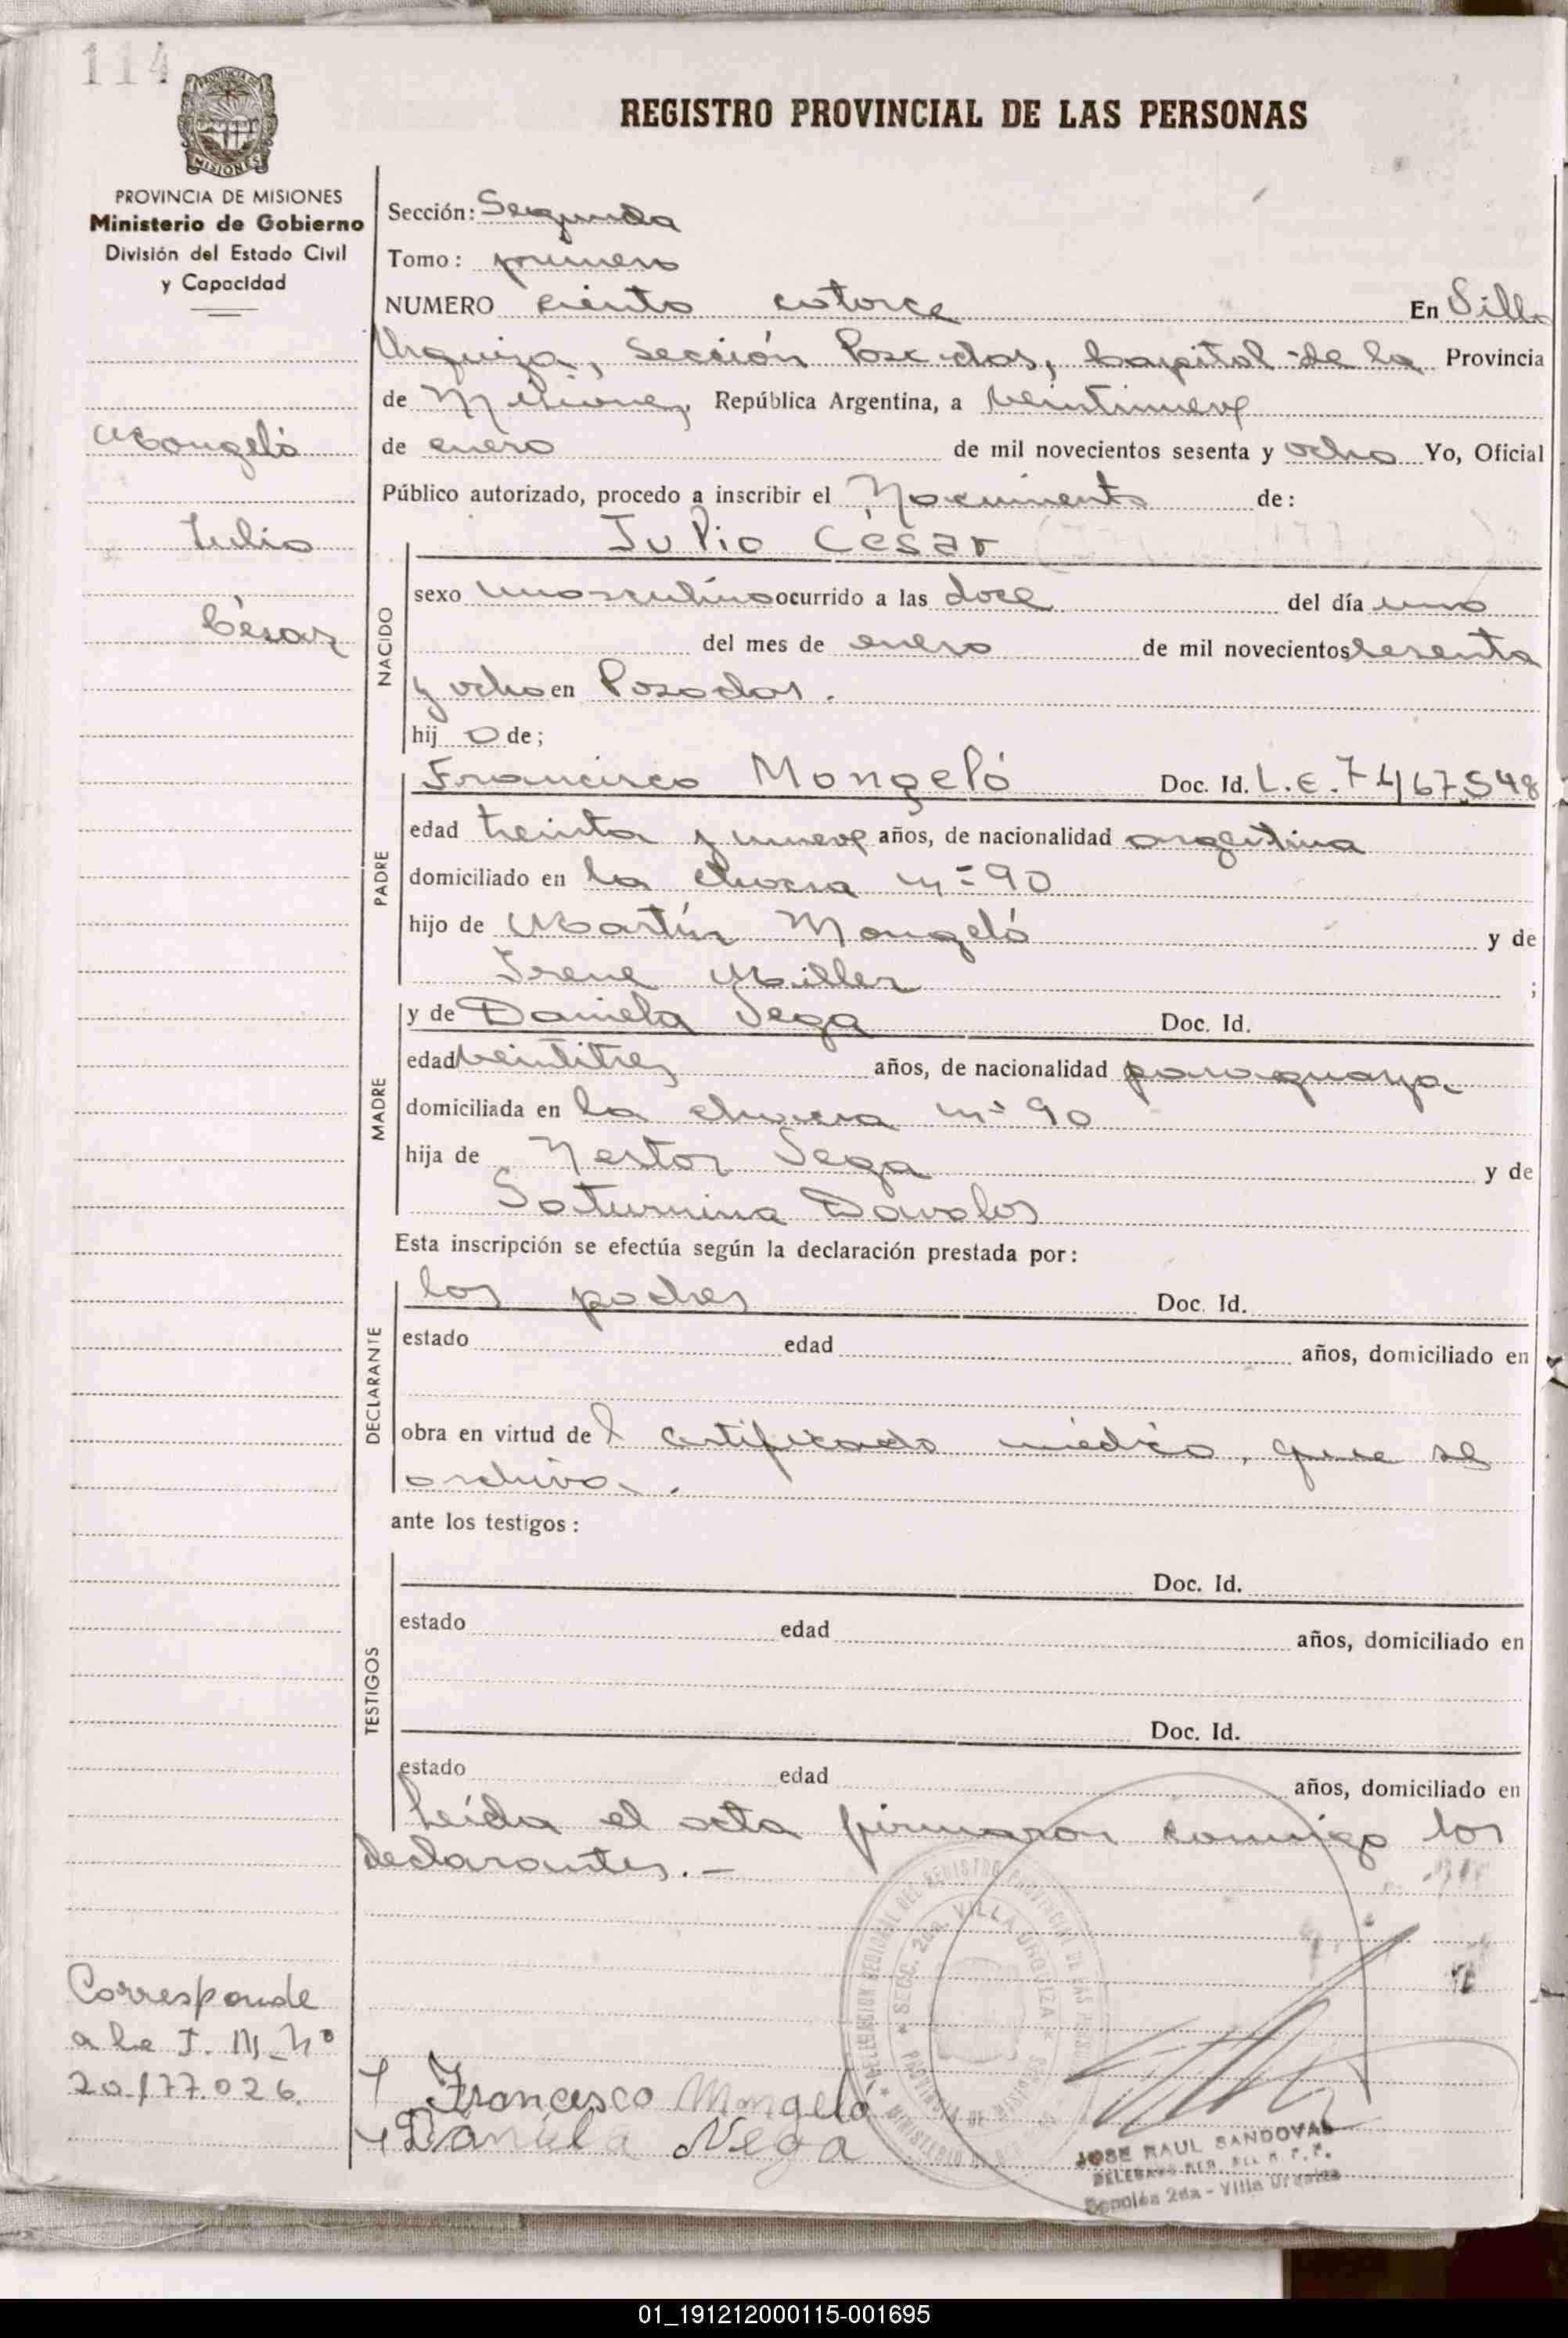 114
PROVINCIA DE
MISIONES
PROVINCIA DE MISIONES
Ministerio de Gobierno
División del Estado Civil
y Capacidad
REGISTRO PROVINCIAL DE LAS PERSONAS
Sección: Segunda
Tomo: primero
NUMERO ciento catorce En Villa
Urquiza, sección Posadas, Capital de la Provincia
de Misiones, República Argentina, a veintinueve
de enero de mil novecientos sesenta y ocho Yo, Oficial
Público autorizado, procedo a inscribir el Nacimiento de:
Mongeló
Julio
César
Julio César
NACIDO
sexo masculino ocurrido a las doce del día uno
del mes de enero de mil novecientos sesenta
y ocho en Posadas.
hij o de;
PADRE
Francisco Mongeló Doc. Id. L.E. 7.467.548
edad treinta y nueve años, de nacionalidad argentina
domiciliado en la chacra nº 90
hijo de Martín Mongeló y de
Irene Miller ;
MADRE
y de Daniela Vega Doc. Id.
edad veintitres años, de nacionalidad paraguaya
domiciliada en la chacra nº 90
hija de Nestor Vega y de
Saturnina Davalos
Esta inscripción se efectúa según la declaración prestada por:
DECLARANTE
los padres Doc. Id.
estado edad años, domiciliado en
obra en virtud de l certificado médico, que se
archiva.
ante los testigos:
TESTIGOS
Doc. Id.
estado edad años, domiciliado en
Doc. Id.
estado edad años, domiciliado en
Leída el acta firmaron conmigo los
declarantes.-
Corresponde
a la I. M. Nº
20.177.026.
Francisco Mongeló
Daniela Vega
DELEGACION REGIONAL DEL REGISTRO PROVINCIAL DE LAS PERSONAS
SECC. 2da. VILLA URQUIZA
PROVINCIA DE MISIONES
JOSE RAUL SANDOVAL
Sección 2da - Villa Urquiza
01_191212000115-001695